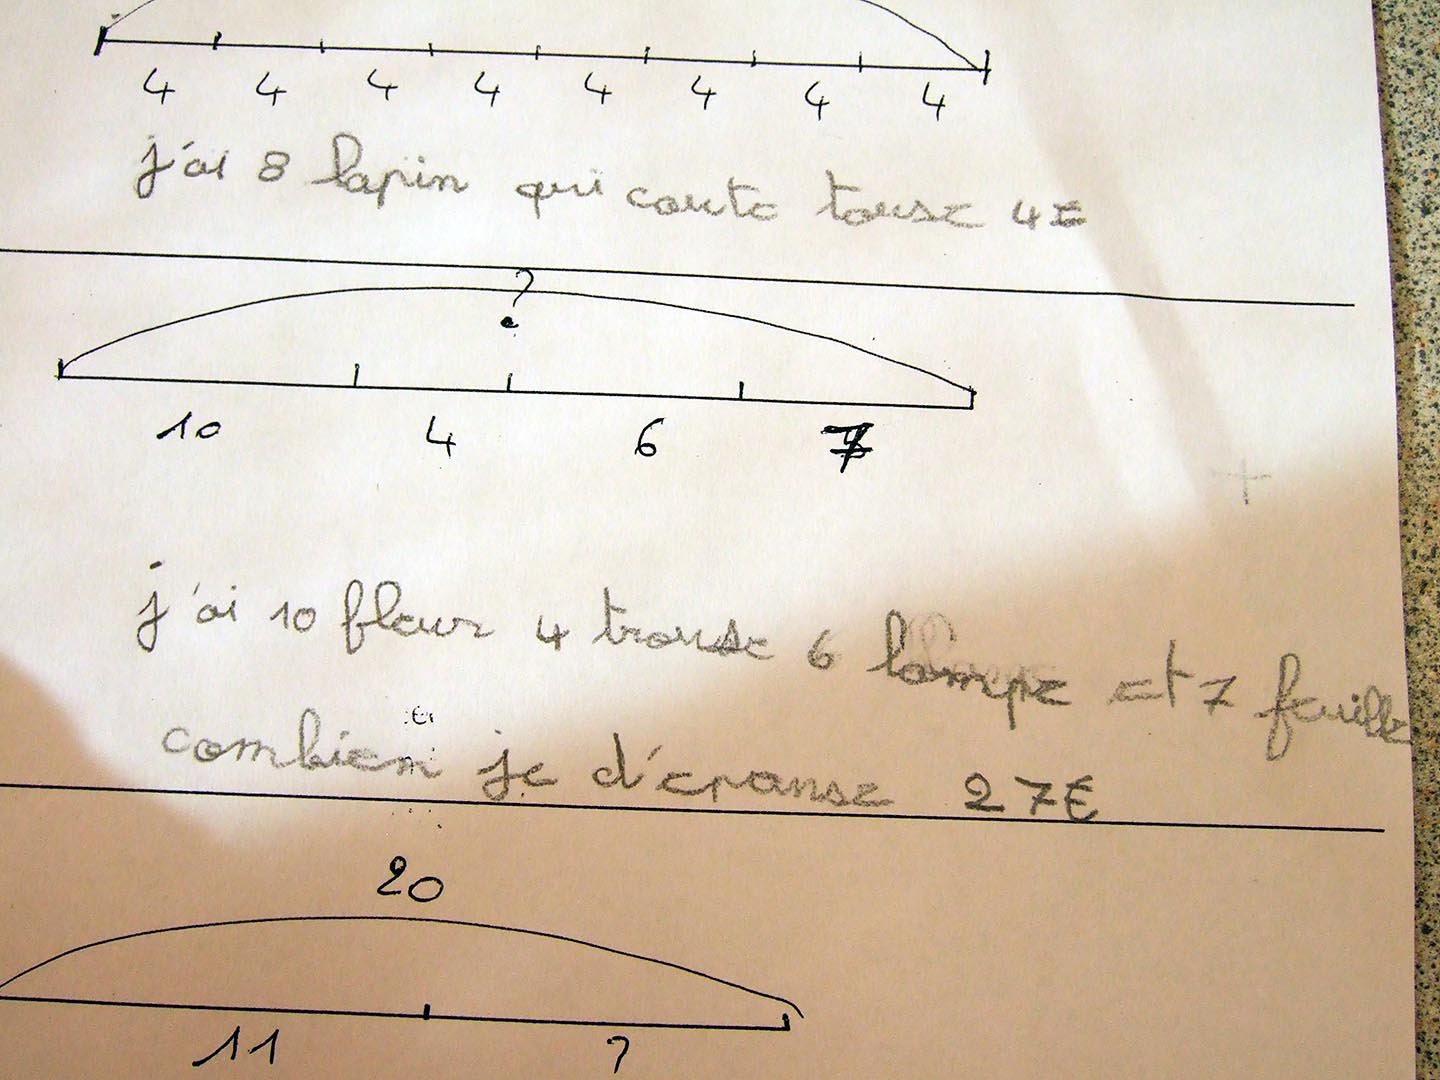 4 4 4 4 4 4 4 4
j'ai 8 lapin qui coute touse 4€
?
10 4 6 7
j'ai 10 fleur 4 trouse 6 lampe et 7 feuille
combien je d'épanse 27€
20
11 ?